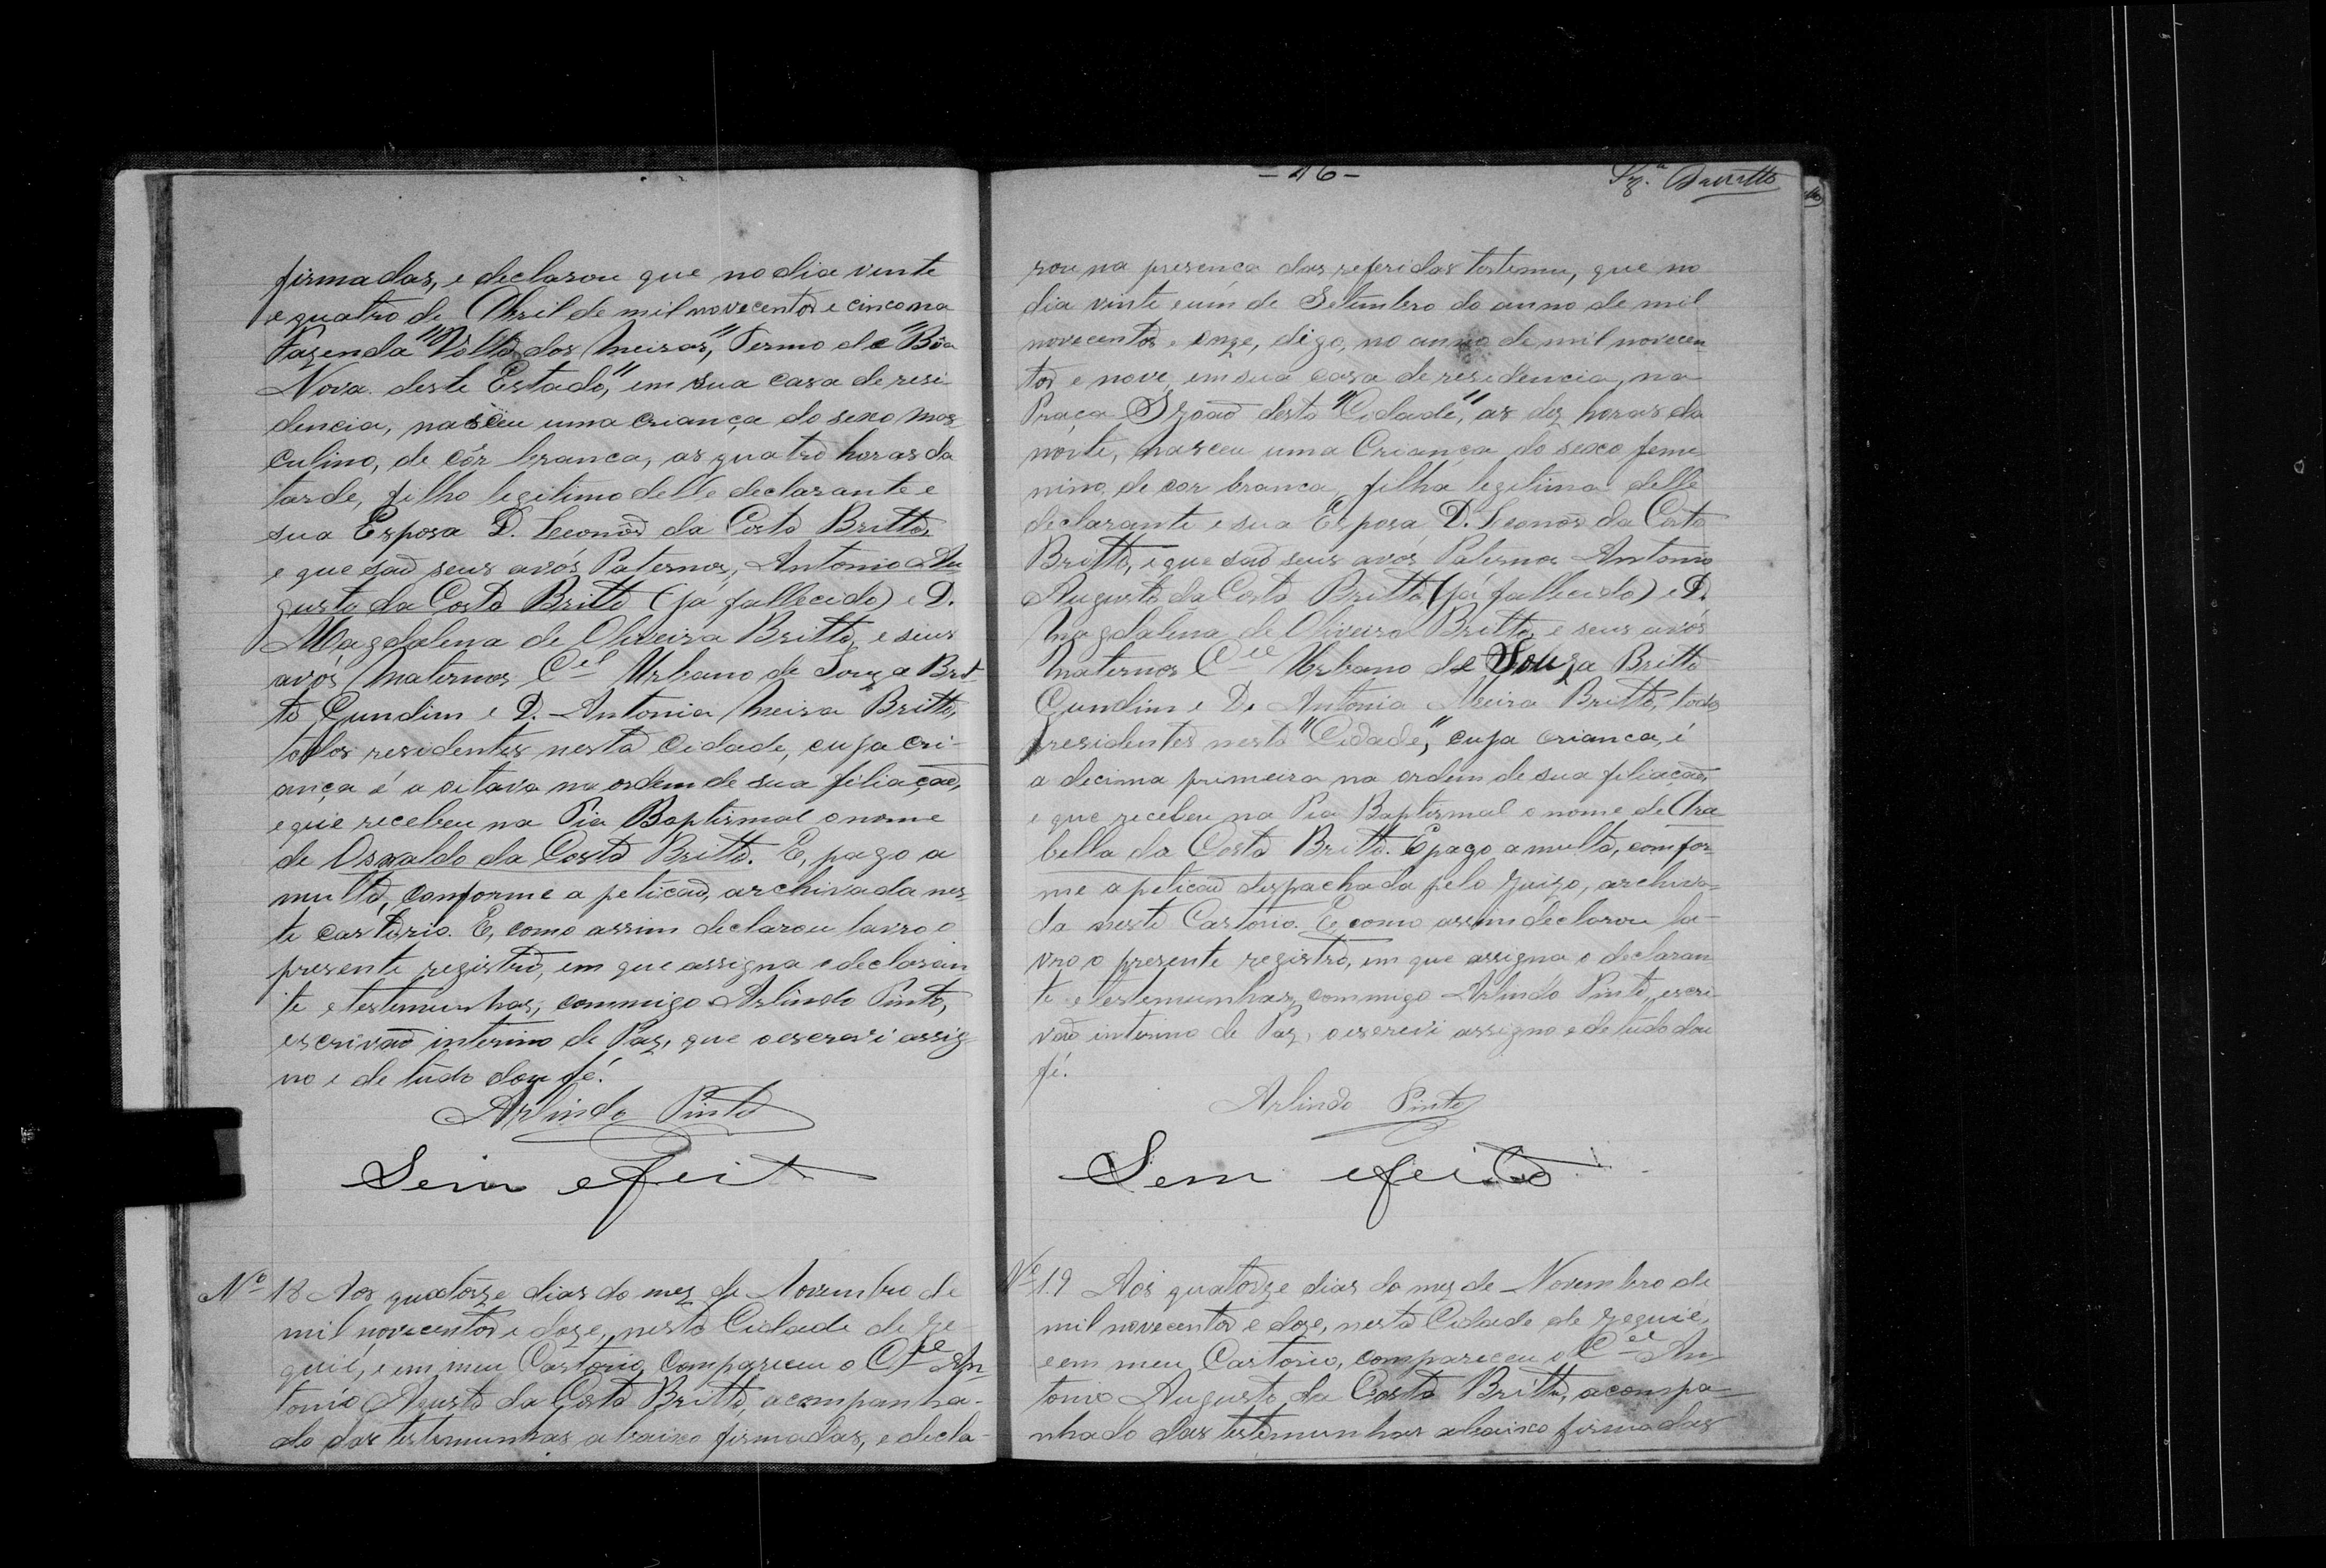 firmadas, e declarou que no dia vinte
e quatro de Abril de mil novecentos e cinco na
Fazenda "Volta dos Meiras", Termo de "Bôa
Nova deste Estado," em sua casa de resi-
dencia, nasceu uma criança do sexo mas
culino, de côr branca, as quatro horas da
tarde, filho legitimo delle declarante e
sua Esposa D. Leonôr da Costa Britto,
e que saõ seus avós Paternos, Antonio Au
gusto da Costa Britto (já fallecido) e D.
Magdalena de Oliveira Britto, e seus
avós Maternos Cel Urbano de Souza Brit-
to Gundim e D. Antonia Meira Britto,
todos residentes nesta Cidade, cuja cri-
ança é a oitava na ordem de sua filiaçaõ,
e que recebeu na Pia Baptismal o nome
de Oswaldo da Costa Britto. E, pago a
multa, conforme a petiçaõ, archivada nes
te cartorio. E, como assim declarou lavro o
presente registro, em que assigna o declaran
te e testemunhas, commigo Arlindo Pinto,
escrivaõ interino de Paz, que o escrevi assig
no e de tudo dou fé.
Arlindo Pinto
Sem efeito
Nº 18 Aos quatorze dias do mez de Novembro de
mil novecentos e doze, nesta Cidade de Je-
quié, e em meu Cartorio, compareceu o Cel An
tonio Agusto da Costa Britto, acompanha-
do das testemunhas abaixo firmadas, e decla-
- 46 -
Britto
rou na presença das referidas testemu, que no
dia vinte e um de Setembro do anno de mil
novecentos e onze, digo, no anno de mil novecen
tos e nove, em sua casa de residencia, na
Praça S Joaõ desta "Cidade", as dez horas da
noite, nasceu uma Criança do sexo femi
nino, de cor branca, filha legitima delle
declarante e sua Esposa D. Leonor da Costa
Britto, e que saõ seus avós Paternos Antonio
Augusto da Costa Britto (já fallecido) e D.
Magdalena de Oliveira Britto, e seus avós
Maternos Cel Urbano de Souza Britto
Gundim e D. Antonia Meira Britto, todos
residentes nesta "Cidade", cuja criança, é
a decima primeira na ordem de sua filiaçaõ,
e que recebeu na Pia Baptismal o nome de Ara
bella da Costa Britto. E pago a multa, comfor
me a petiçaõ despachada pelo Juizo, archiva-
da neste Cartorio. E, como assim declarou la-
vro o presente registro, em que assigna o declaran
te e testemunhas, commigo Arlindo Pinto, escri
vaõ interino de Paz, o escrevi assigno e de tudo dou
fé.
Arlindo Pinto
Sem efeito
Nº 19 Aos quatorze dias do mez de Novembro de
mil novecentos e doze, nesta Cidade de Jequié,
e em meu Cartorio, compareceu o Cel An
tonio Augusto da Costa Britto, acompa-
nhado das testemunhas abaixo firmadas